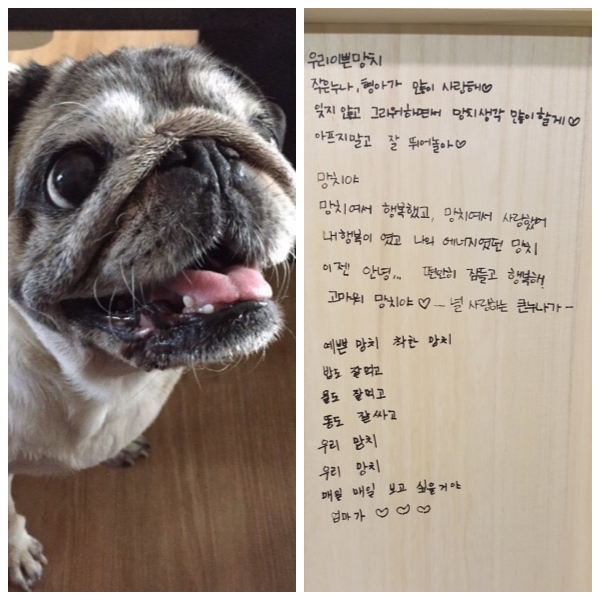 우리이쁜망치
작은누나, 형아가 많이 사랑해♡
잊지 않고 그리워하면서 망치생각 많이할게♡
아프지말고 잘 뛰어놀아♡
망치야
망치여서 행복했고, 망치여서 사랑했어
내행복이 였고 나의 에너지였던 망치
이젠 안녕... 편안히 잠들고 행복해!
고마워 망치야♡ - 널 사랑하는 큰누나가 -
예쁜 망치 착한 망치
밥도 잘먹고
물도 잘먹고
똥도 잘싸고
우리 망치
우리 망치
매일 매일 보고 싶을거야
엄마가 ♡♡♡